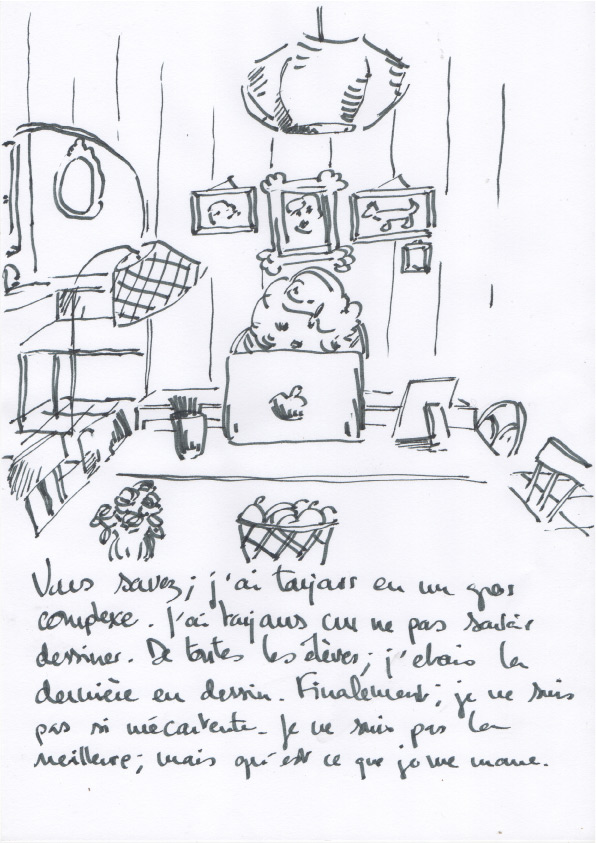 Vous savez; j'ai toujours eu un gros
complexe. J'ai toujours cru ne pas savoir
dessiner. De toutes les élèves; j'étais la
dernière en dessin. Finalement; je ne suis
pas si mécontente. Je ne suis pas la
meilleure; mais qu'est ce que je me marre.